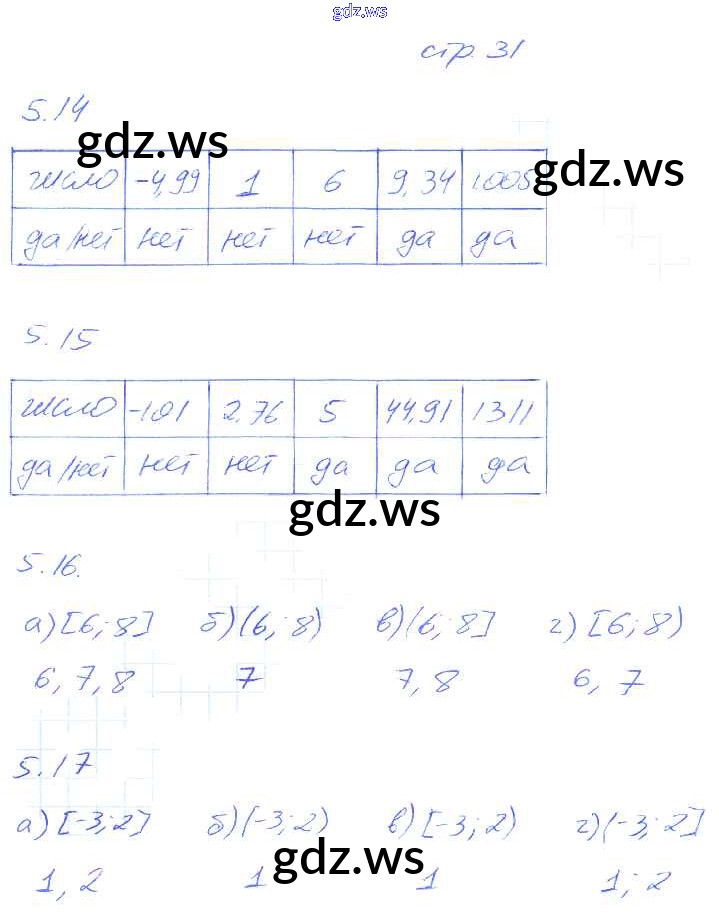 gdz.ws
стр. 31
5.14
gdz.ws
gdz.ws
число -4,99 1 6 9,34 1005
да/нет нет нет нет да да
5.15
число -101 2,76 5 44,91 1311
да/нет нет нет да да да
gdz.ws
5.16.
а) [6; 8] б) (6; 8) в) (6; 8] г) [6; 8)
6, 7, 8 7 7, 8 6, 7
5.17
а) [-3; 2] б) (-3; 2) в) [-3; 2) г) (-3; 2]
gdz.ws
1, 2 1 1 1; 2